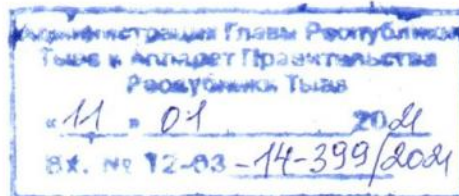 Администрация Главы Республики
Тыва и Аппарат Правительства
Республики Тыва
« 11 » 01 2021
Вх. № 12-03-14-399/2021